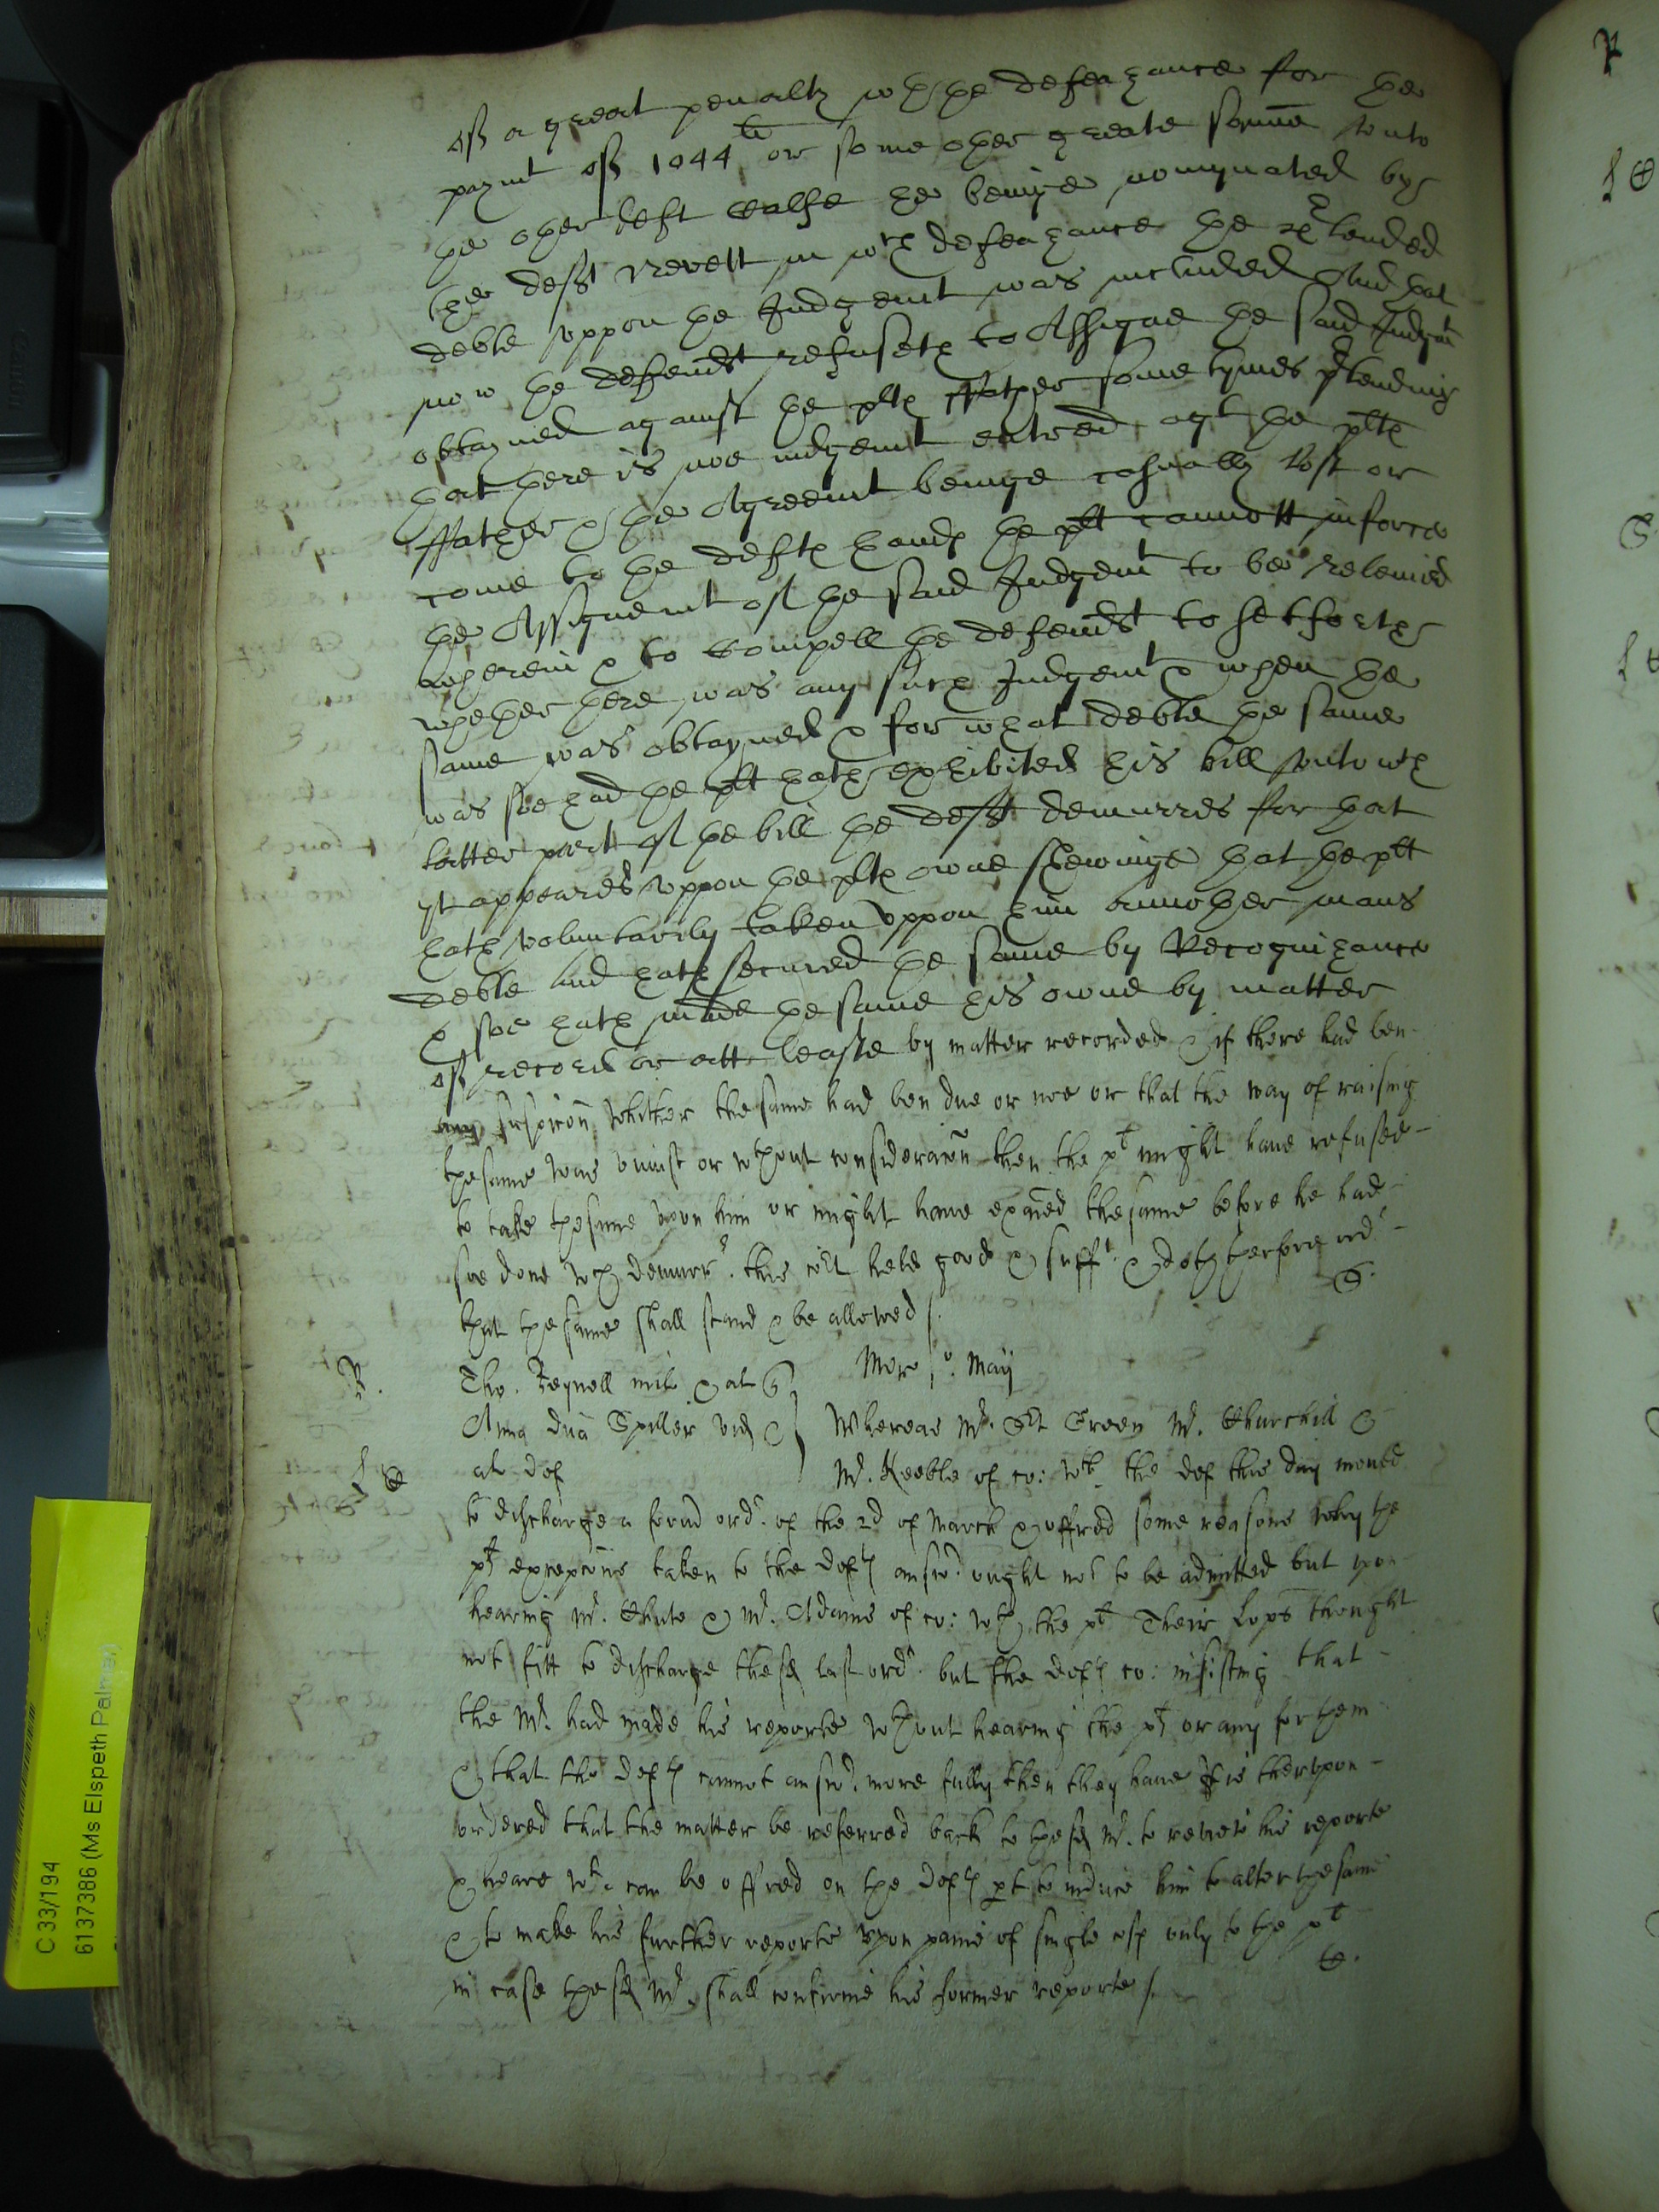 of a great penalty wth the defeazance for the
paymt of 1044li or some other greate somme unto
the other deft Ralfe he beinge nomynated by
the deft Revett in wch defeazance the ptended
debte uppon the Judgemt was included And that
now the defendt refuseth to Assigne the said Judgmt
obtayned against the plts ffather some tymes ptending
that there is noe iudgemt entred agt the plts
ffather & the Agreemt beinge casually lost or
come to the defts hands the plt cannott inforce
the Assignemt of the said Judgemt to bee releived
wherein & to compell the defendt to setforth
whether there was any such Judgemt & when the
same was obtayned & for what debte the same
was soe had the plt hath exhibited his bill unto wch
latter part of the bill the deft demurres for that
yt appeared uppon the plts owne shewinge that the plt
hath voluntarily taken uppon him another mans
debte and hath secured the same by Recognizance
& soe hath made the same his owne by matter
of record or att leaste by matter recorded & if there had ben
any suspicon whither the same had ben due or noe or that the way of raising
the same was uniust or wthout consideracon then the plt might have refused
to take the same upon him or might have exaied the same before he had
soe done wch demurr. this cort held good & sufft. & doth therfore ord
that the same shall stand & be allowed /.
S.
R.
Tho. Reynell mil & al Q
Merc 1o. Maij
Anna dna Spiller vid &
al def
Whereas Mr. Sit Green Mr. Churchill &
Mr. Keeble of co: wth the def this day moved
to discharge a formd ord. of the 2d of March & offred some reasons why the
plt excepcons taken to the defts answ. ought not to be admitted but upon
hearing Mr. Chute & Mr. Adams of co: wth the plt Their Lops thought
not fitt to discharge the sd last ord. but the defts co: insisting that
the Mr. had made his reporte wthout hearing the plt or any for them
& that the defts cannot answ. more fully then they have It is therupon
ordered that the matter be referred back to the sd Mr. to review his reporte
& heare wt. can be offred on the defts pt to induce him to alter the same
& to make his further reporte upon paine of single costs only to the plt
in case the sd Mr. shall confirme his former reporte /.
C 33/194
6137386 (Ms Elspeth Palmer)